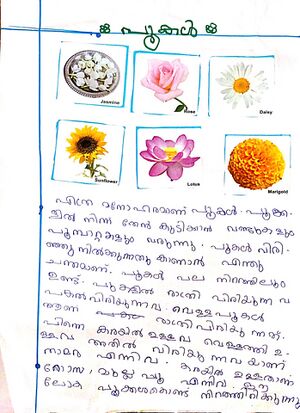 പൂക്കൾ
Jasmine Rose Daisy
Sunflower Lotus Marigold
എന്ത് മനോഹരമാണ് പൂക്കൾ. പൂക്ക-
ളിൽ നിന്ന് തേൻ കുടിക്കാൻ വണ്ടുകളും
പൂമ്പാറ്റകളും വരുന്നു. പൂക്കൾ വിരി-
ഞ്ഞു നിൽക്കുന്നതു കാണാൻ എന്തു
ചന്തമാണ്. പൂക്കൾ പല നിറത്തിലും
ഉണ്ട്. പൂക്കളിൽ രാത്രി വിരിയുന്നവ
പകൽ വിരിയുന്നവ. വെള്ള പൂക്കൾ
രാത്രി വിരിയുന്നത്.
പിന്നെ കരയിൽ ഉള്ളവ വെള്ളത്തി ഉ-
ള്ളവ അതിൽ വിരിയുന്നവയാണ്
താമര എന്നിവ. കരയിൽ ഉള്ളതാണ്
റോസ, മുല്ലപ്പൂ എന്നിവ. ഈ
ലോക പൂക്കൾകൊണ്ട് നിറഞ്ഞിരിക്കുന്നു